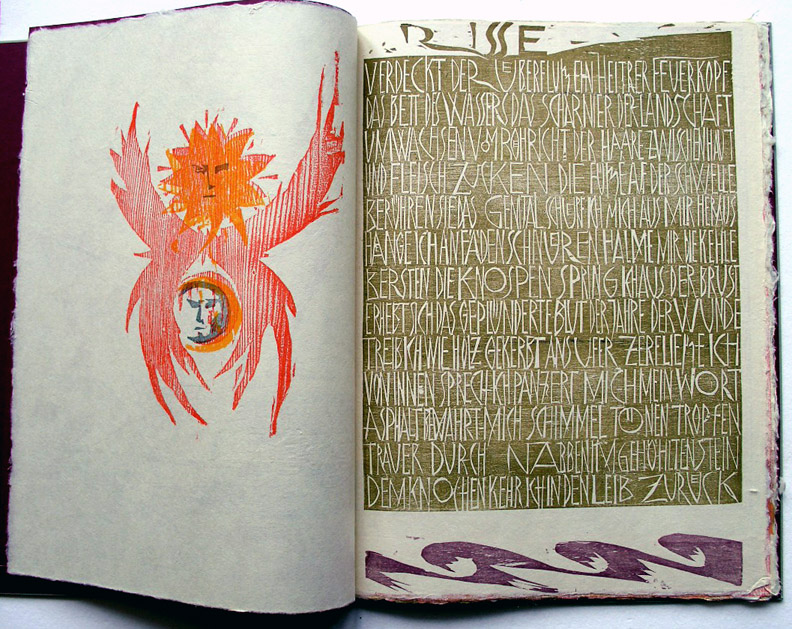 RISSE
VERDECKT DER UEBERFLUSS EIN HEITRER FEUERKOPF
DAS BETT DES WASSERS DAS SCHARNIER DER LANDSCHAFT
UMWACHSEN VOM RÖHRICHT DER HAARE ZWISCHEN HAUT
UND FLEISCH ZUCKEN DIE AUF DER SCHWELLE
BERÜHREN SIE DAS GENITAL ICH MICH AUS MIR HERAUS
HÄNGE ICH AN FÄDEN SCHNÜREN HALME MIR DIE KEHLE
BERSTEN DIE KNOSPEN SPRING ICH AUS DER BRUST
ERHEBT SICH DAS GEPLÜNDERTE BLUT DER JAHRE DER WUNDE
TREIB ICH WIE HOLZ GEKERBT ANS UFER ICH
VON INNEN SPRECH ICH PANZERT MICH MEIN WORT
ASPHALT BEWAHRT MICH SCHIMMEL TÖNEN TROPFEN
TRAUER DURCH GEHÖHLTEN STEIN
DEM KNOCHEN KEHR ICH IN DEN LEIB ZURÜCK